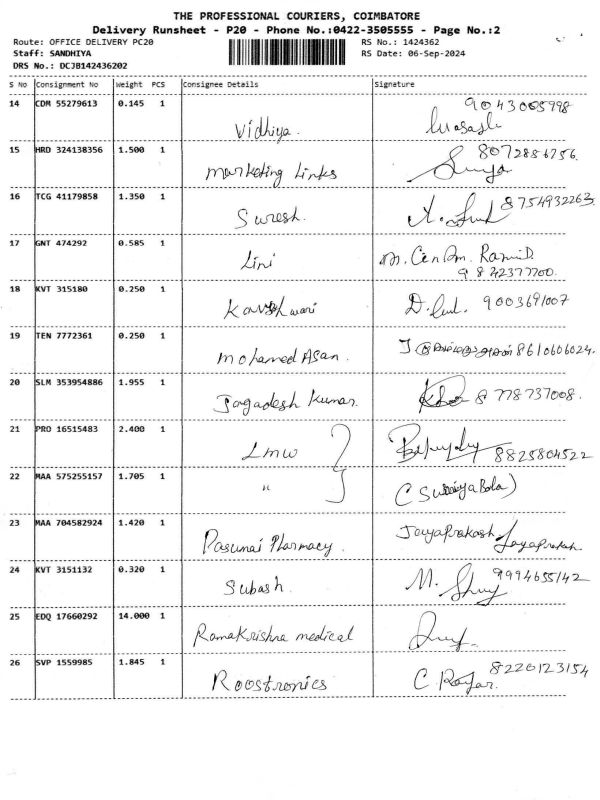 THE PROFESSIONAL COURIERS, COIMBATORE
Delivery Runsheet - P20 - Phone No.:0422-3505555 - Page No.:2
Route: OFFICE DELIVERY PC20 RS No.: 1424362
Staff: SANDHIYA RS Date: 06-Sep-2024
DRS No.: DCJB142436202
S No Consignment No Weight PCS Consignee Details Signature
14 CDM 55279613 0.145 1 Vidhiya. 9043005998
15 HRD 324138356 1.500 1 Marketing Links 8072886756.
16 TCG 41179858 1.350 1 Suresh. 8754932263.
17 GNT 474292 0.585 1 Lini
9842377700.
18 KVT 315180 0.250 1 D. 9003691007
19 TEN 7772361 0.250 1 Mohamed Asan. 8610606024.
20 SLM 353954886 1.955 1 Jagadesh Kumar. 8778737008.
21 PRO 16515483 2.400 1 LMW 8825804522
22 MAA 575255157 1.705 1 "
23 MAA 704582924 1.420 1 Pasumai Pharmacy. JayaPrakash Jayaprakash
24 KVT 3151132 0.320 1 Subash. M. 9994655142
25 EDQ 17660292 14.000 1 Ramakrishna medical
26 SVP 1559985 1.845 1 Roostronics C 8220123154